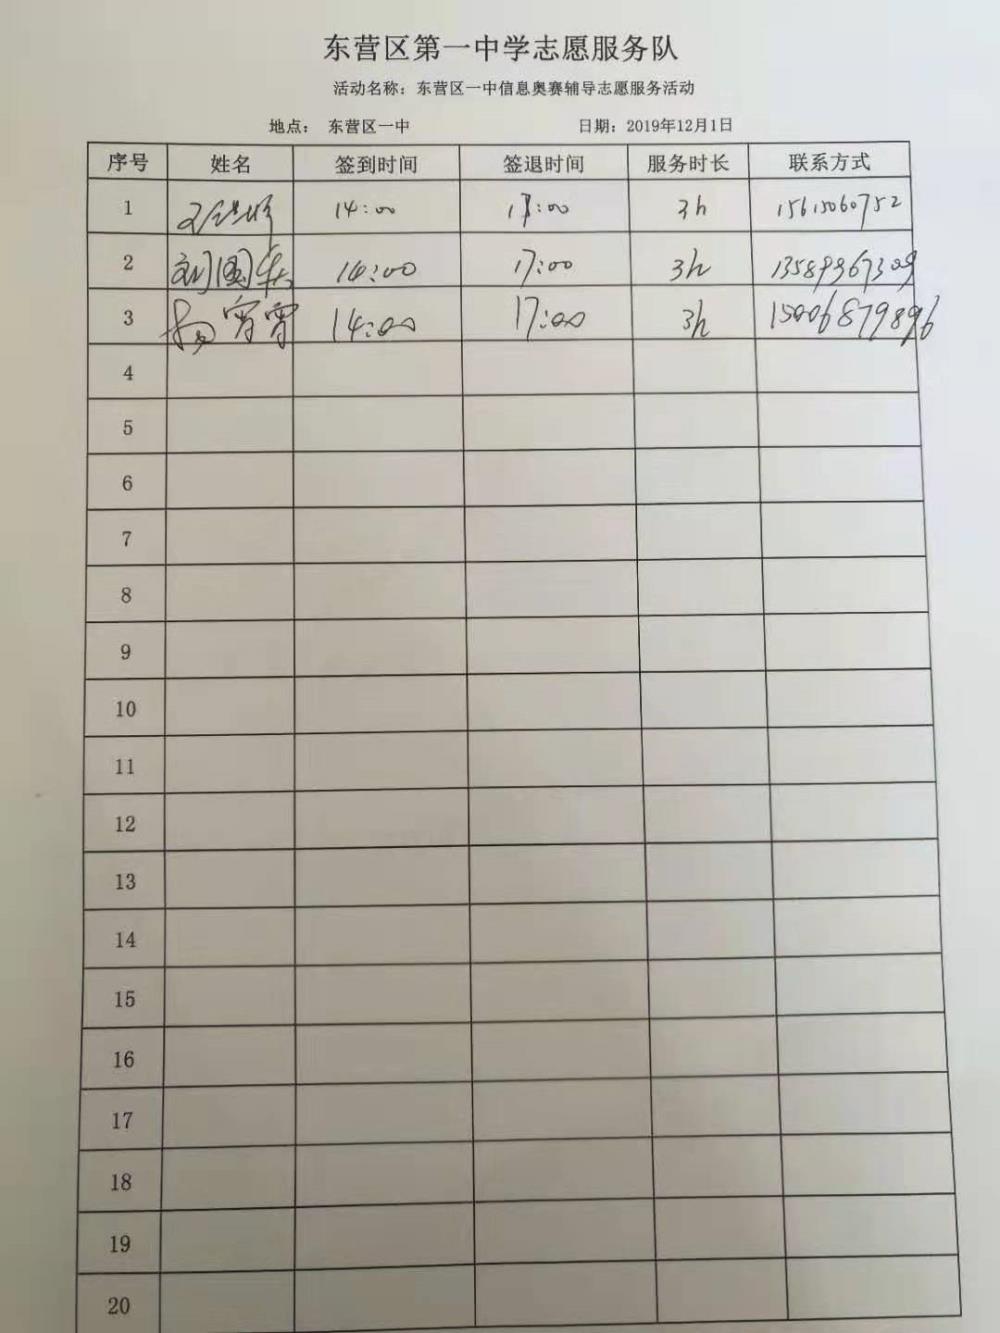 东营区第一中学志愿服务队
活动名称：东营区一中信息奥赛辅导志愿服务活动
地点： 东营区一中 日期：2019年12月1日
序号 姓名 签到时间 签退时间 服务时长 联系方式
1 14:00 17:00 3h 15615060752
2 刘国华 14:00 17:00 3h 13589967309
3 杨宵宵 14:00 17:00 3h 15006879896
4
5
6
7
8
9
10
11
12
13
14
15
16
17
18
19
20